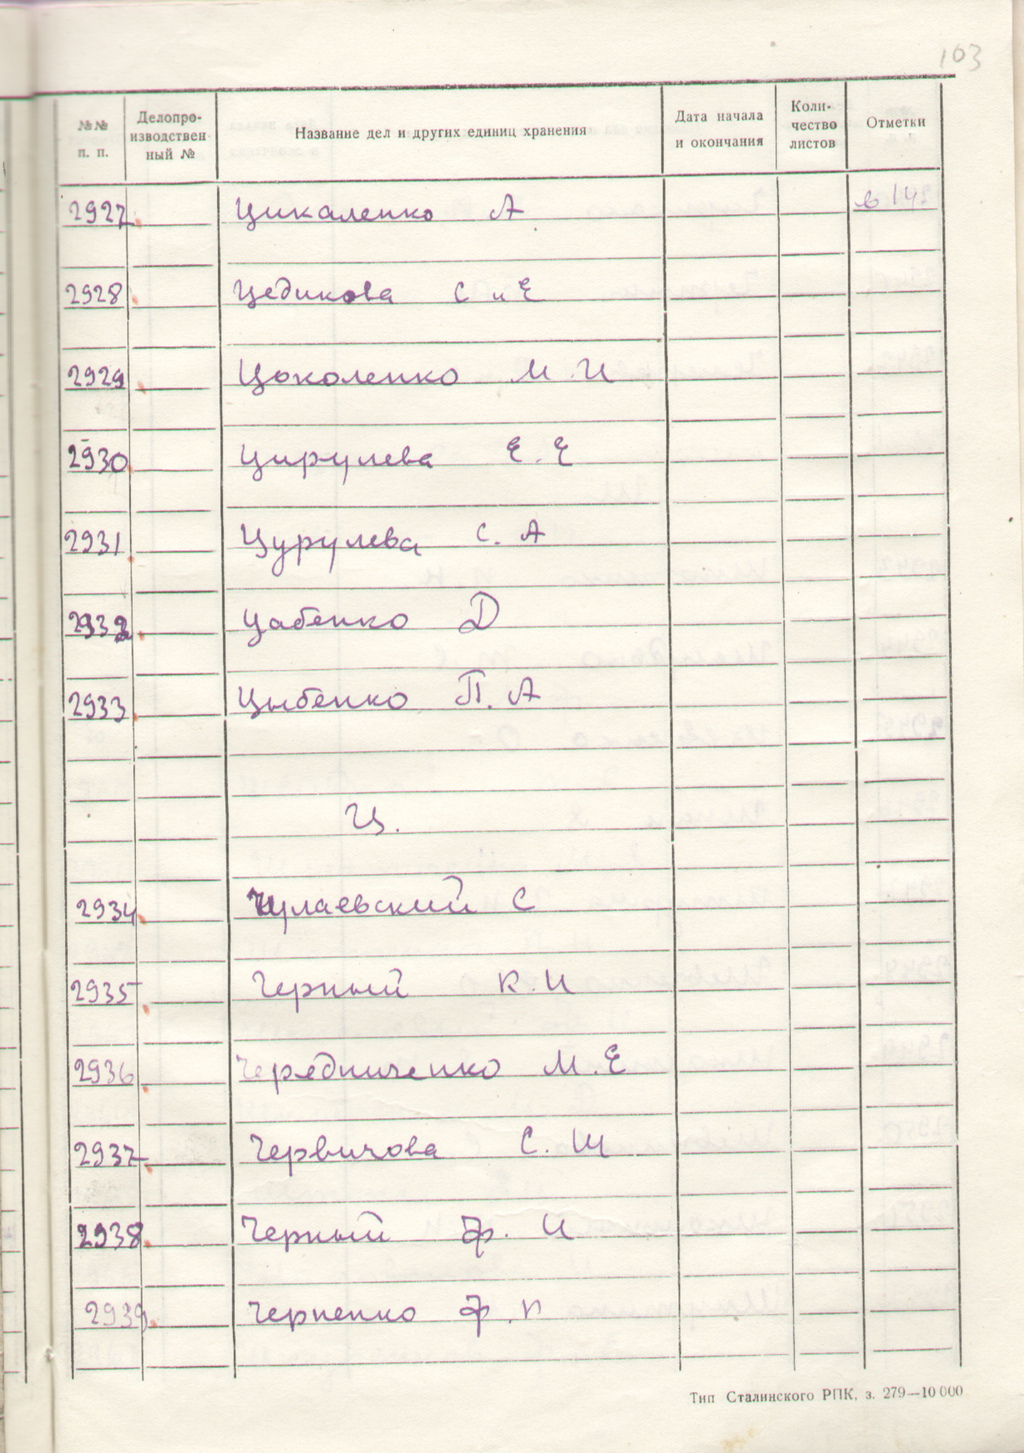 103
№№ п. п.
Делопро-
изводствен
ный №
Название дел и других единиц хранения
Дата начала
и окончания
Коли-
чество
листов
Отметки
2927 Цикаленко А
2928 Цедикова С и Е
2929 Цоколенко М И
2930 Цирулева Е. Е
2931 Цурулева С. А
2932 Цабенко Д
2933 Цыбенко П. А
Ч.
2934 Чулаевский С
2935 Черный К. И
2936 Чередниченко М. Е
2937 Червичова С. Ш
2938 Черный Ф. И
2939 Черненко Ф. К
Тип Сталинского РПК, з. 279—10 000